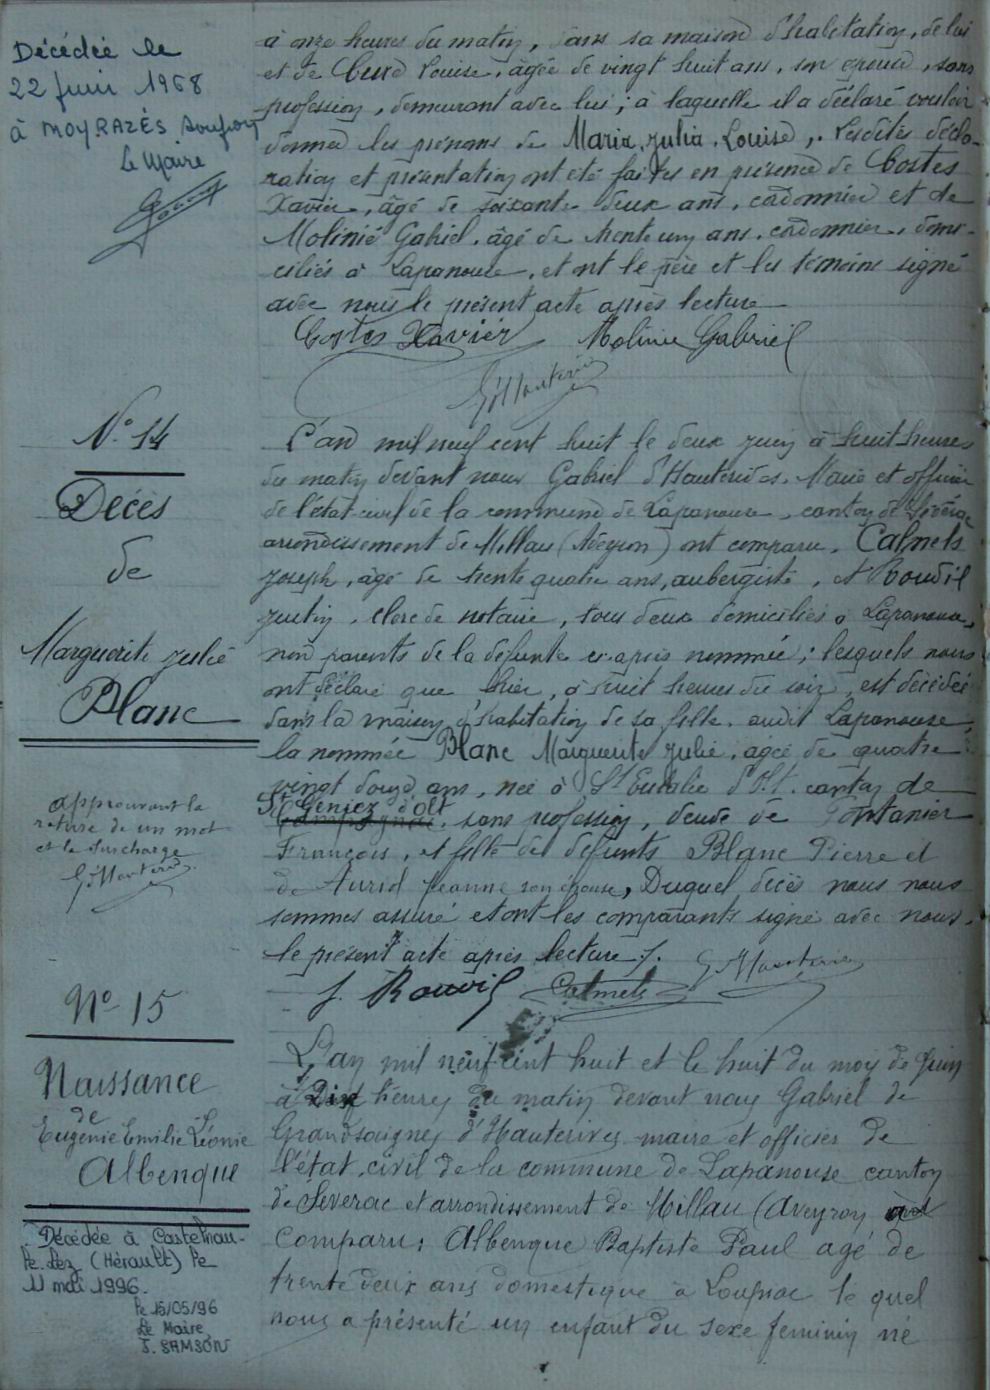 Décédée le
22 juin 1968
à MOYRAZÈS
Le Maire
à onze heures du matin, dans sa maison d'habitation, de lui
et de Louise, âgée de vingt huit ans, son épouse, sans
profession, demeurant avec lui; à laquelle il a déclaré vouloir
donner les prénoms de Maria, Julia, Louise, lesdites décla-
ration et présentation ont été faites en présence de Costes
Xavier, âgé de soixante deux ans, cordonnier et de
Molinié Gabriel, âgé de trente un ans, cordonnier, domi-
ciliés à Lapanouse, et ont le père et les témoins signé
avec nous le présent acte après lecture
Costes Xavier Molinié Gabriel
G d'Hauterives
N° 14
Décès
de
Marguerite Julie
Blanc
L'an mil neuf cent huit le deux juin à huit heures
du matin devant nous Gabriel d'Hauterives, Maire et officier
de l'état civil de la commune de Lapanouse, canton de Sévérac
arrondissement de Millau (Aveyron) ont comparu, Calmels
Joseph, âgé de trente quatre ans, aubergiste, et Rouvil
Justin, clerc de notaire, tous deux domiciliés à Lapanouse,
non parents de la défunte ci après nommée; lesquels nous
ont déclaré que hier, à huit heures du soir, est décédée
dans la maison d'habitation de sa fille, audit Lapanouse,
la nommée Blanc Marguerite Julie, âgée de quatre
vingt douze ans, née à St Eulalie d'Olt, canton de
St Geniez d'olt
Campagnac, sans profession, veuve de Fontanier
François, et fille des défunts Blanc Pierre et
de Jeanne son épouse, Duquel décès nous nous
sommes assuré et ont les comparants signé avec nous
le présent acte après lecture /.
J. Rouvil Calmels G d'Hauterives
approuvant la
rature de un mot
et la surcharge
G d'Hauterives
N° 15
Naissance
de
Eugénie Emilie Léonie
Albenque
Décédée à Castelnau-
le-Lez (Hérault) le
11 mai 1996.
le 15/05/96
Le Maire,
J. SAMSON
L'an mil neuf cent huit et le huit du moy de Juin
à Dix heures du matin devant nous Gabriel de
Grandsaignes d'Hauterives maire et officier de
l'état civil de la commune de Lapanouse canton
de Séverac et arrondissement de Millau (Aveyron ont
Comparu: Albenque Baptiste Paul agé de
trente deux ans domestique à Loupiac le quel
nous a présenté un enfant du sexe feminin né